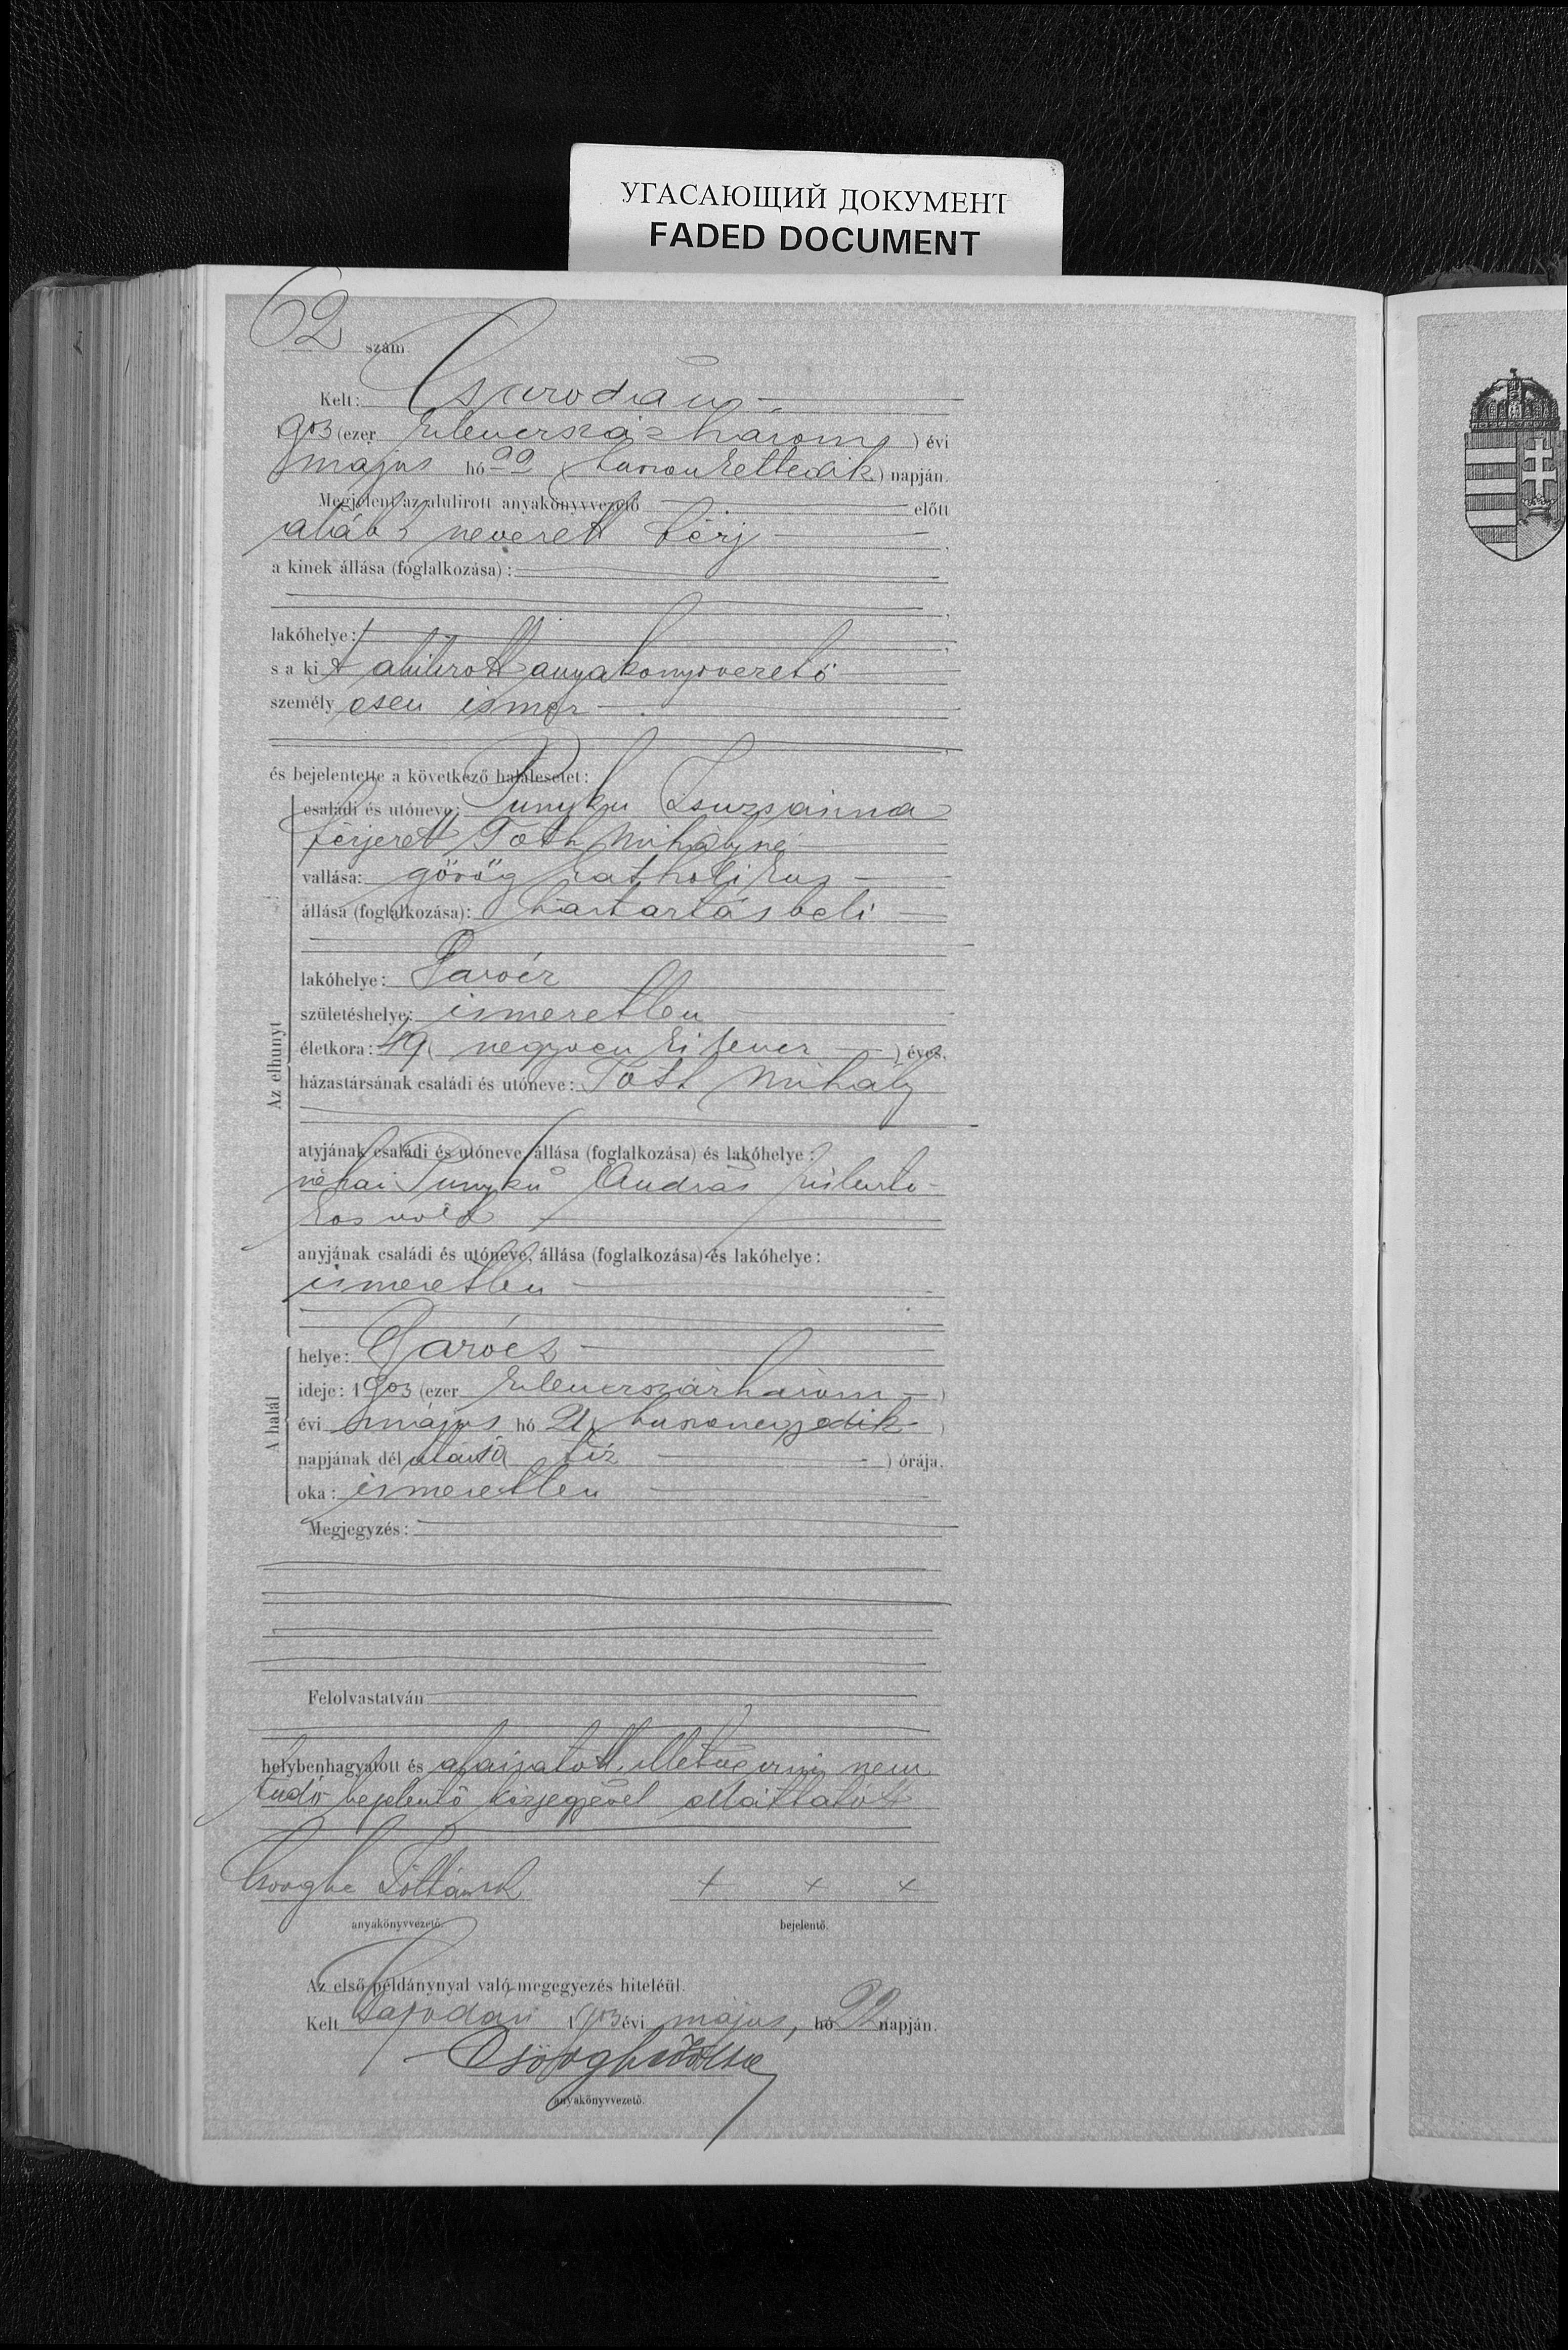 УГАСАЮЩИЙ ДОКУМЕНТ
FADED DOCUMENT
62 szám
Kelt:
1903 (ezer kilencszázhárom) évi
május hó 22 (huszonkettedik) napján.
Megjelent az alulirott anyakönyvvezető előtt
alább nevezett férj
a kinek állása (foglalkozása):
lakóhelye:
s a kit alulirott anyakönyvvezető
személyesen ismer
és bejelentette a következő halálesetet:
családi és utóneve: Punyku Zsuzsánna
férjezett Tóth Mihályné
vallása: görög katholikus
állása (foglalkozása): háztartásbeli
lakóhelye:
születéshelye: ismeretlen
életkora: 49 (negyven kilencz) éves.
házastársának családi és utóneve: Tóth Mihály
Az elhunyt
atyjának családi és utóneve, állása (foglalkozása) és lakóhelye:
néhai Punyku András
anyjának családi és utóneve, állása (foglalkozása) és lakóhelye:
ismeretlen
helye:
ideje: 1903 (ezer kilenczszázhárom)
évi május hó 21 (huszonegyedik)
A halál
napjának délutáni tíz ) órája.
oka: ismeretlen
Megjegyzés:
Felolvastatván
helybenhagyatott és aláiratott, illetve irni nem
tudó bejelentő kézjegyével elláttatott
+ + +
anyakönyvvezető. bejelentő.
Az első példánynyal való megegyezés hiteléül.
Kelt 1903 évi május hó 22 napján.
anyakönyvvezető.